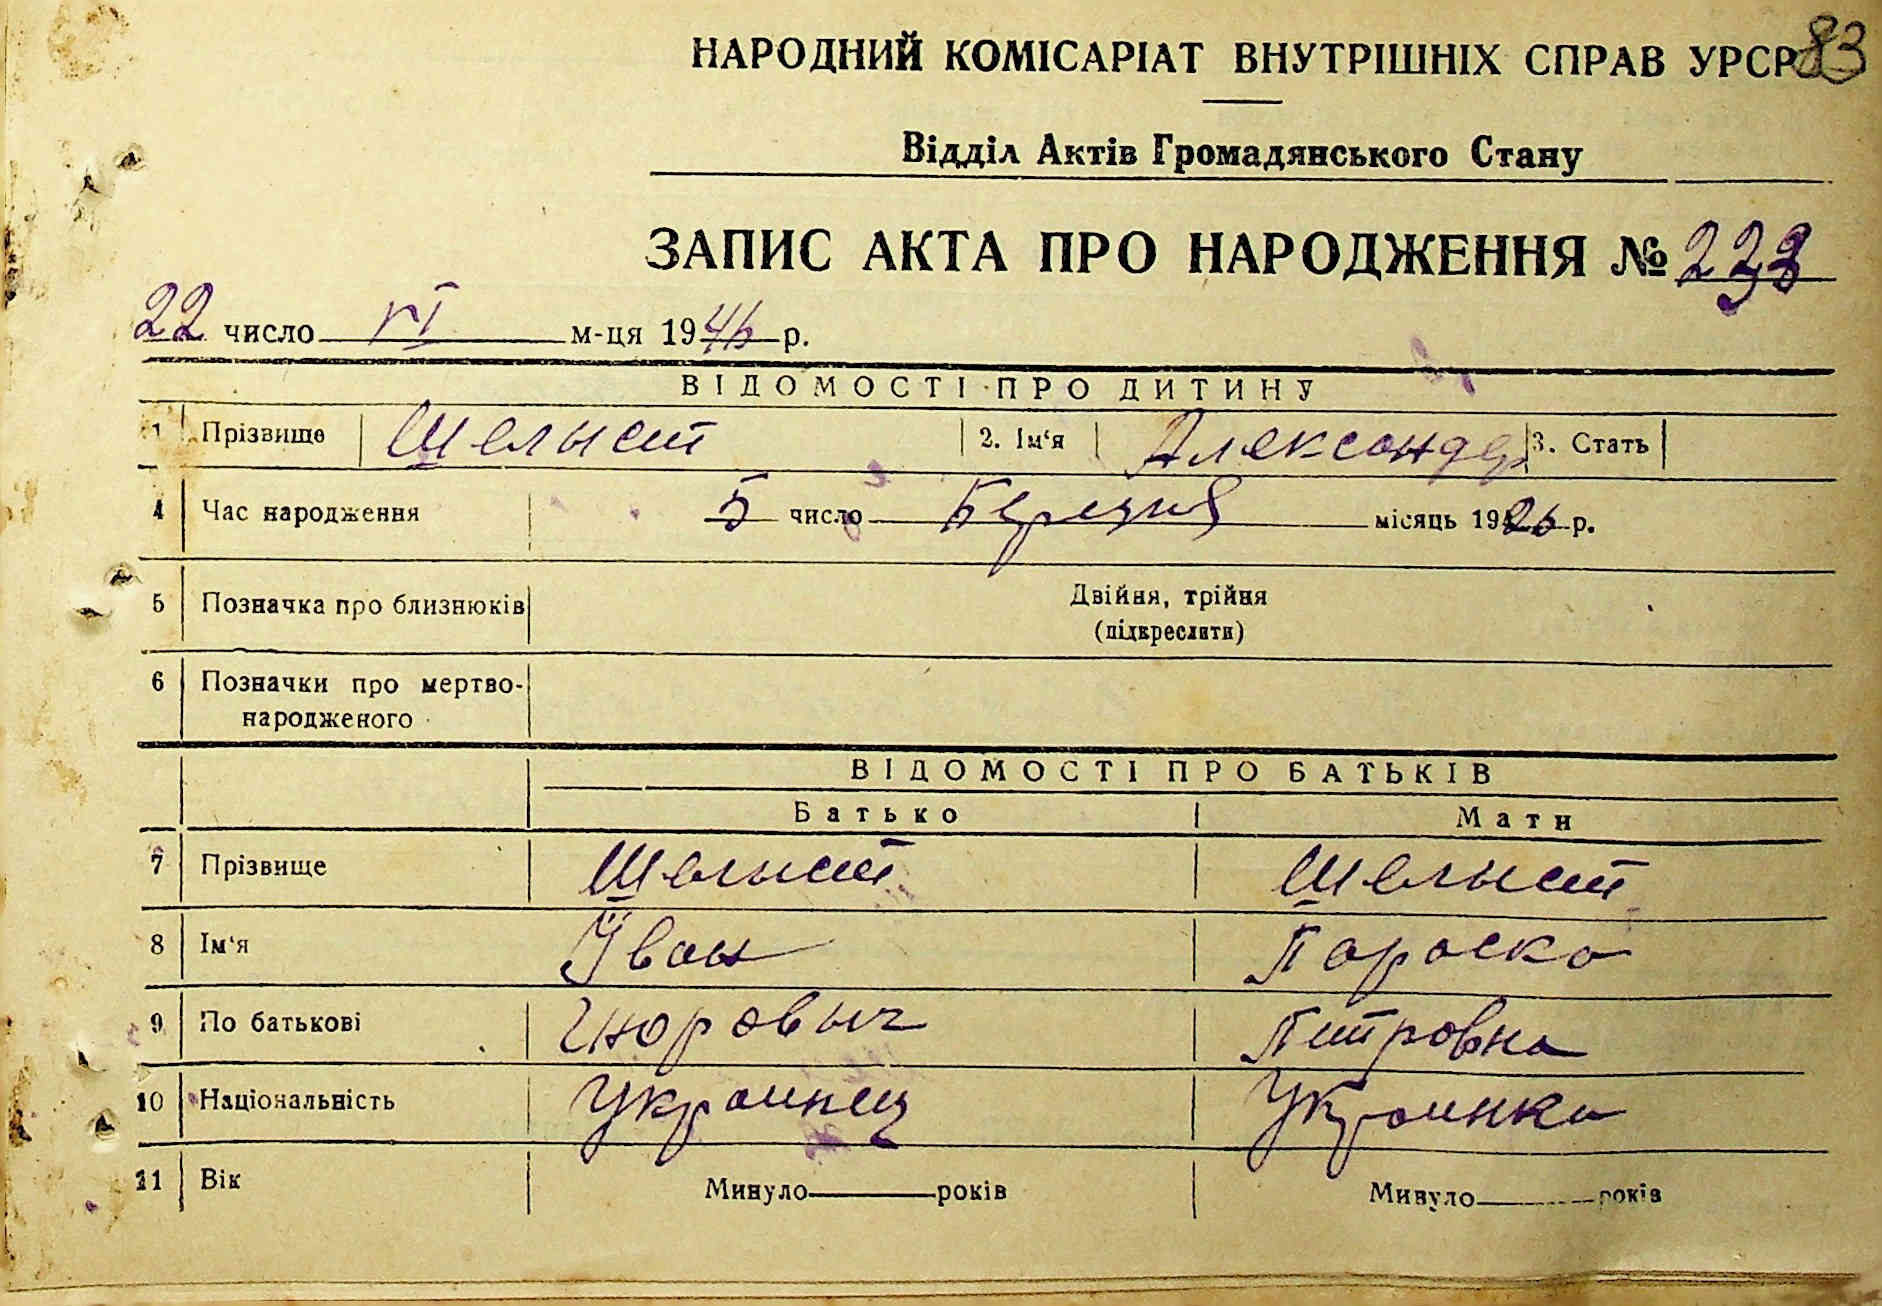 83
НАРОДНИЙ КОМІСАРІАТ ВНУТРІШНІХ СПРАВ УРСР
Відділ Актів Громадянського Стану
ЗАПИС АКТА ПРО НАРОДЖЕННЯ №
22 число VI м-ця 1946 р.
ВІДОМОСТІ ПРО ДИТИНУ
1 Прізвище Шелыст 2. Ім‘я Александр 3. Стать
4 Час народження 5 число Березня місяць 1926 р.
5 Позначка про близнюків Двійня, трійня
(підкреслити)
6 Позначки про мертво-
народженого
ВІДОМОСТІ ПРО БАТЬКІВ
Батько Мати
7 Прізвище Шелыст Шелыст
8 Ім‘я Иван Параска
9 По батькові Петровна
10 Національність Украинец Украинка
11 Вік Минуло років Минуло років